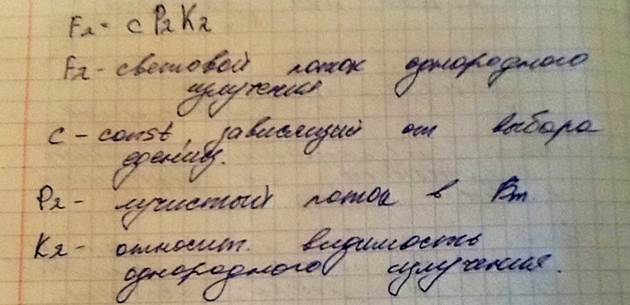 F₂ = c P₂ K₂
F₂ - световой поток однородного
излучения
c - const, зависящий от выбора
едениц.
P₂ - лучистый поток в Вт
K₂ - относит. видимость
однородного излучения.